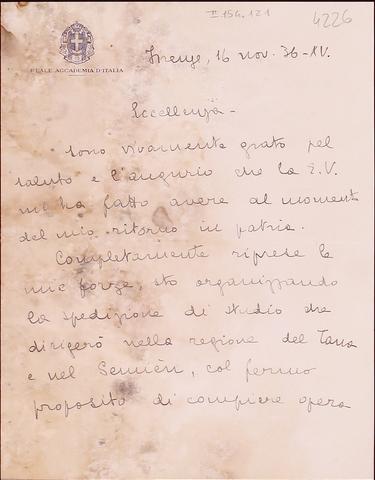 II.156.121
4226
REALE ACCADEMIA D'ITALIA
Firenze, 16 nov. 36-XV.
Eccellenza -
sono vivamente grato pel
saluto e l'augurio che la E.V.
mi ha fatto avere al momento
del mio ritorno in patria.
Completamente riprese le
mie forze, sto organizzando
la spedizione di studio che
dirigerò nella regione del Tana
e nel Semièn, col fermo
proposito di compiere opera